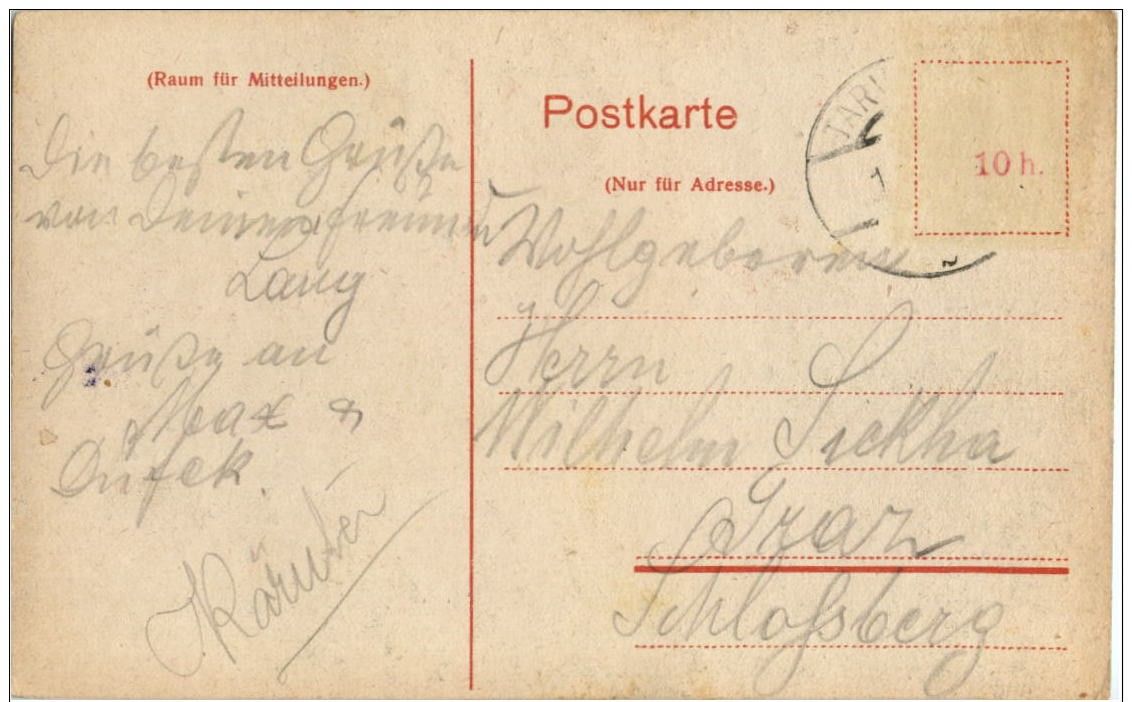 (Raum für Mitteilungen.)
Die besten Grüße
von Deinem Freund
Lang
Grüße an
Max &
Postkarte
(Nur für Adresse.)
TAR
10 h.
Wohlgeboren
Herrn
Wilhelm Sickha
Graz
Schloßberg